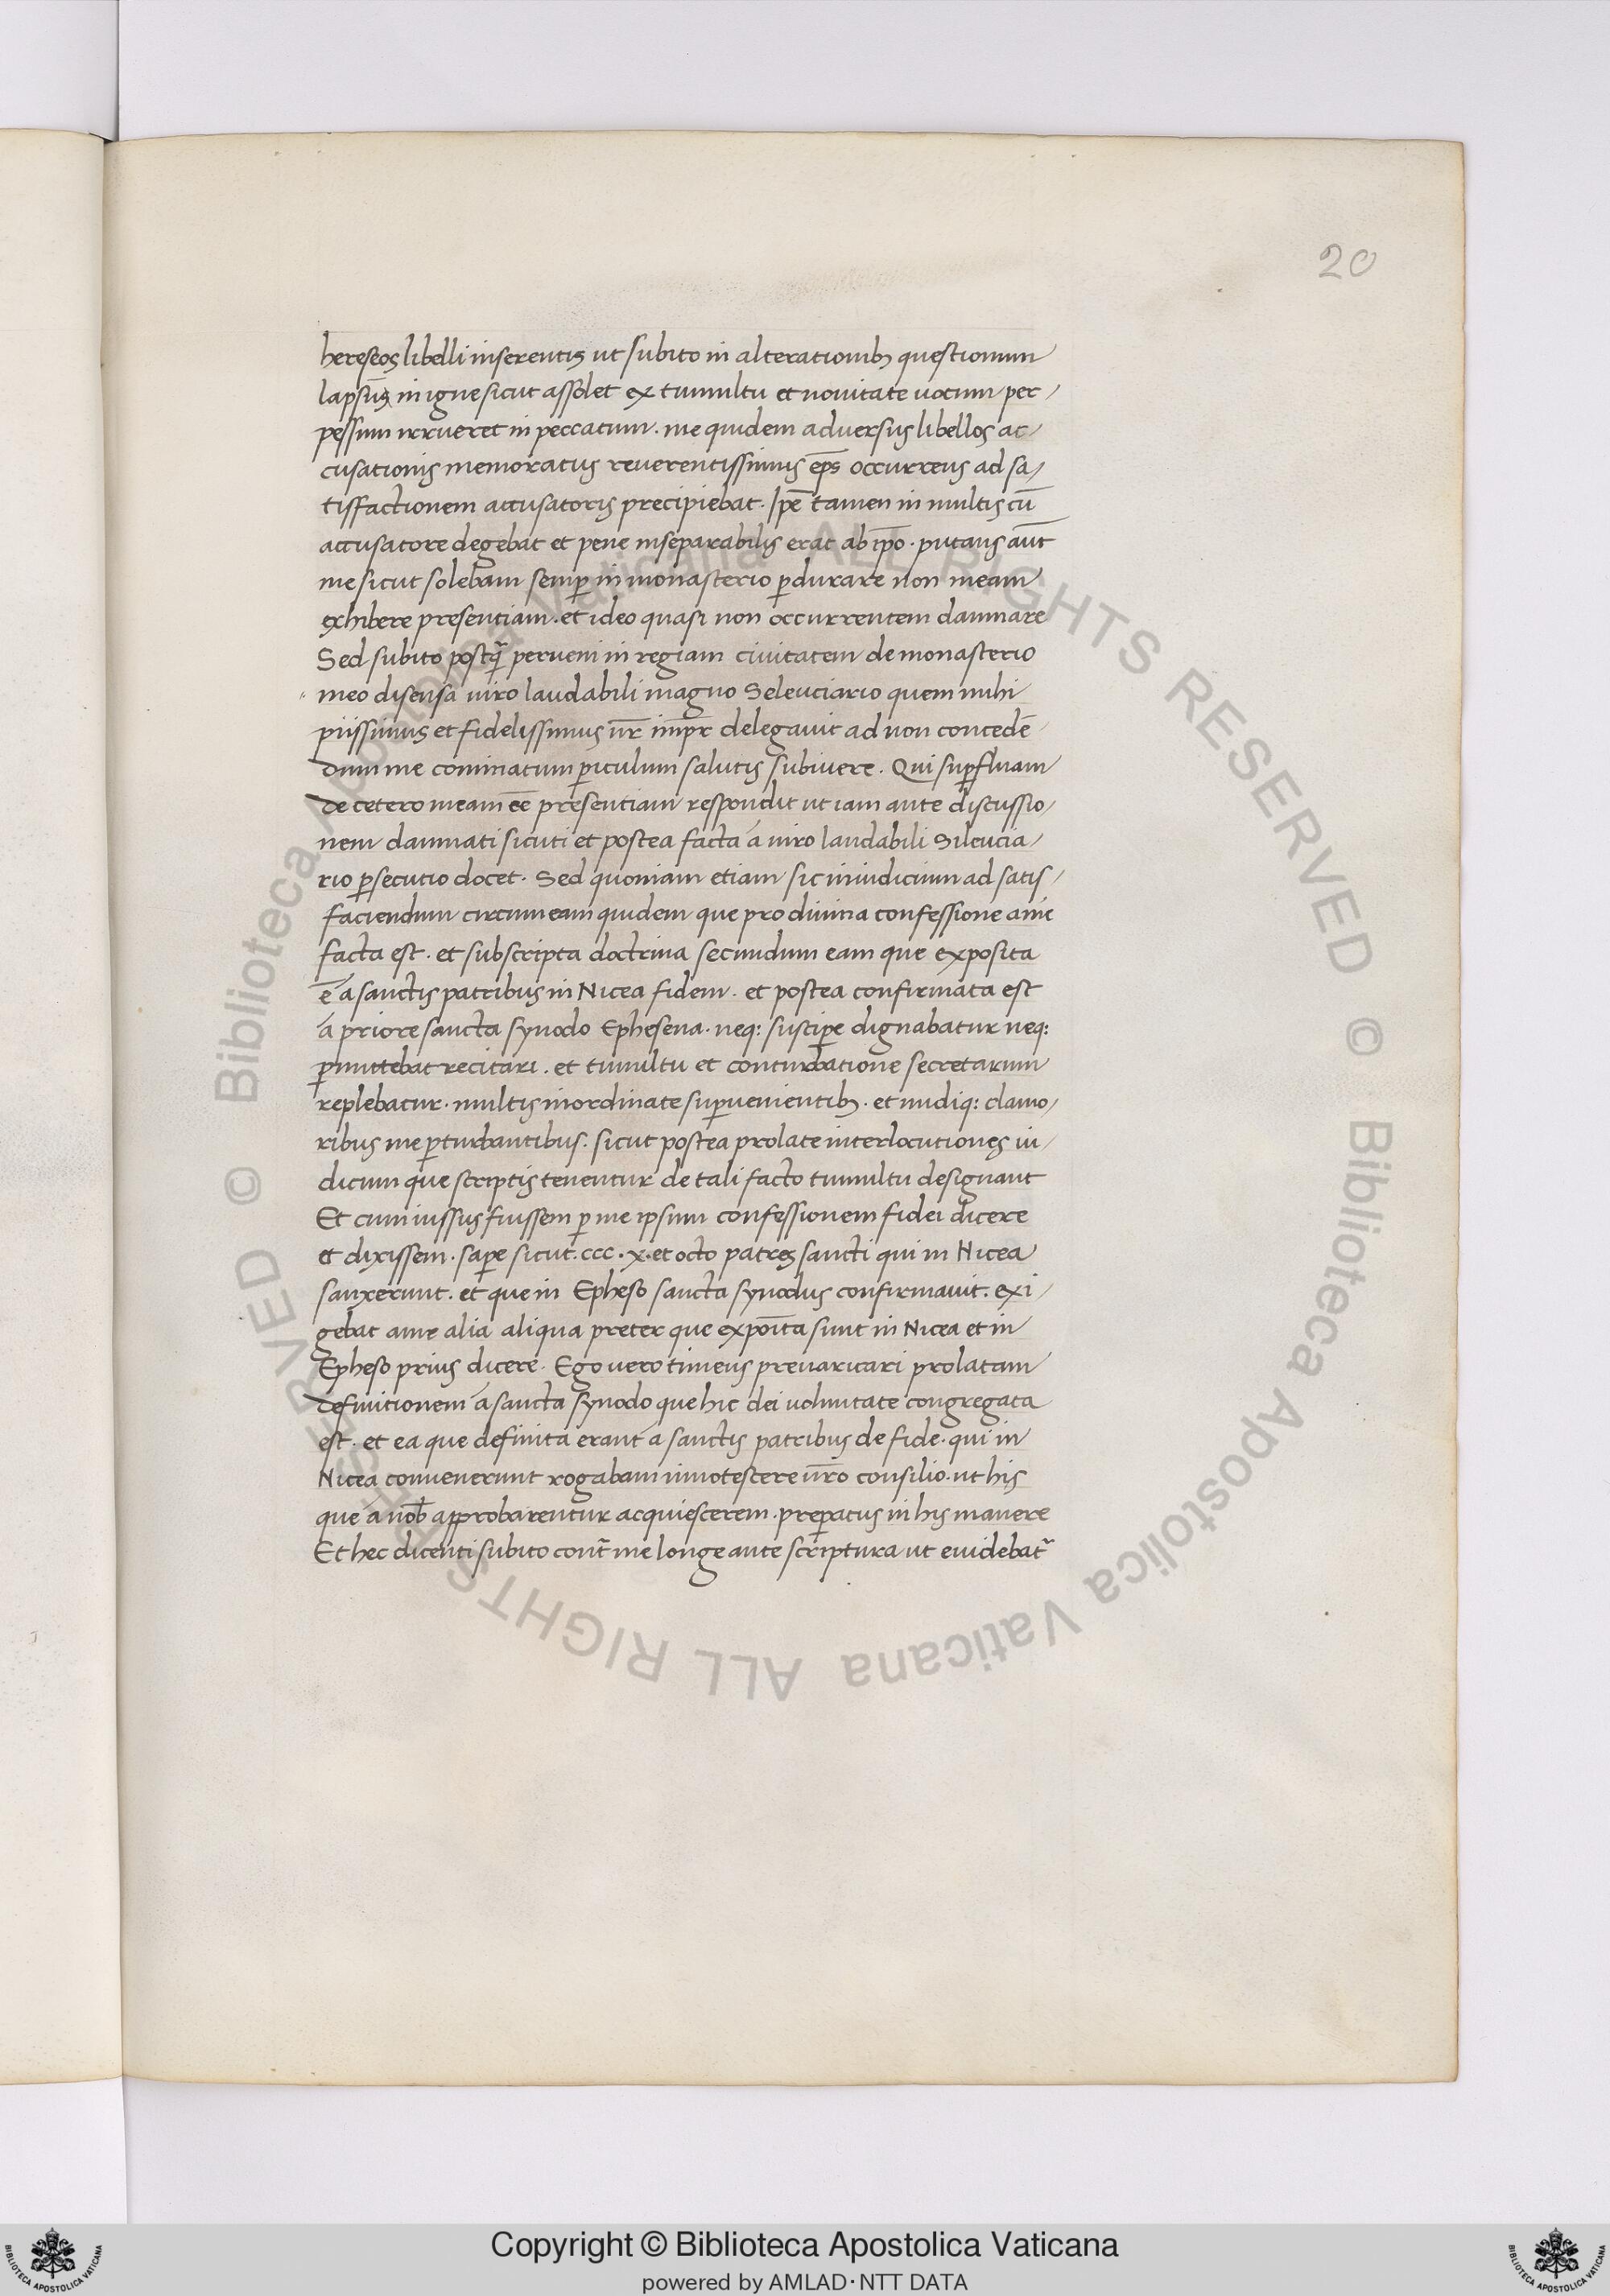 20
hereseos libelli inserentis ut subito in alterationibꝫ questionum
lapsus in igne sicut assolet ex tumultu et nouitate uocum per/
pessum irrueret in peccatum. me quidem aduersus libellos ac/
cusationis memoratus reuerentissimus ep̄s occurrens ad sa/
tisfactionem accusatoris precipiebat. Ip̄e tamen in multis cū
accusatore degebat et pene inseparabilis erat ab ip̄o. putans aūt
me sicut solebam semꝑ in monasterio ꝑdurare non meam
exhibere presentiam. et ideo quasi non occurrentem damnare
Sed subito postq̄ perueni in regiam ciuitatem de monasterio
meo disensa uiro laudabili magno Seleuciario quem mihi
piissimus et fidelissimus nr̄ imp̄r delegauit ad non concedē
dum me cominatum ꝑiculum salutis subiuere. Qui suꝑfluam
de cetero meam eē presentiam respondit ut iam ante discussio/
nem damnati sicuti et postea facta á uiro laudabili Sileucia/
rio ꝑsecutio docet. Sed quoniam etiam sic in iudicium ad satis/
faciendum circum eam quidem que pro diuina confessione ame
facta est. et subscripta doctrina secundum eam que exposita
ē a sanctis patribus in Nicea fidem. et postea confirmata est
á priore sancta synodo Ephesena. neq: susciꝑe dignabatur neq:
ꝑmittebat recitari. et tumultu et conturbatione secretarum
replebatur. multis inordinate suꝑuenientibꝫ. et undiq: clamo/
ribus me ꝑturbantibus. sicut postea prolate interlocutiones iu/
dicum que scriptis tenentur de tali facto tumultu designant
Et cum iussus fuissem ꝑ me ipsum confessionem fidei dicere
et dixissem. saꝑe sicut .ccc.x. et octo patres sancti qui in Nicea
sanxerunt. et que in Epheso sancta synodus confirmauit. exi/
gebat ame alia aliqua preter que expoīta sunt in Nicea et in
Epheso prius dicere. Ego uero timens preuaricari prolatam
definitionem á sancta synodo que hic dei uoluntate congregata
est. et ea que definita erant á sanctis patribus de fide. qui in
Nicea conuenerunt rogabam innotescere ūro consilio. ut his
que á nob̄ approbarentur acquiescerem. preꝑatus in his manere
Et hec dicenti subito cont̄ me longe ante scriptura ut euidebat᷑
© Biblioteca Apostolica Vaticana ALL RIGHTS RESERVED © Biblioteca Apostolica Vaticana ALL RIGHTS RESERVED
Copyright © Biblioteca Apostolica Vaticana
powered by AMLAD·NTT DATA
BIBLIOTECA APOSTOLICA VATICANA
BIBLIOTECA APOSTOLICA VATICANA